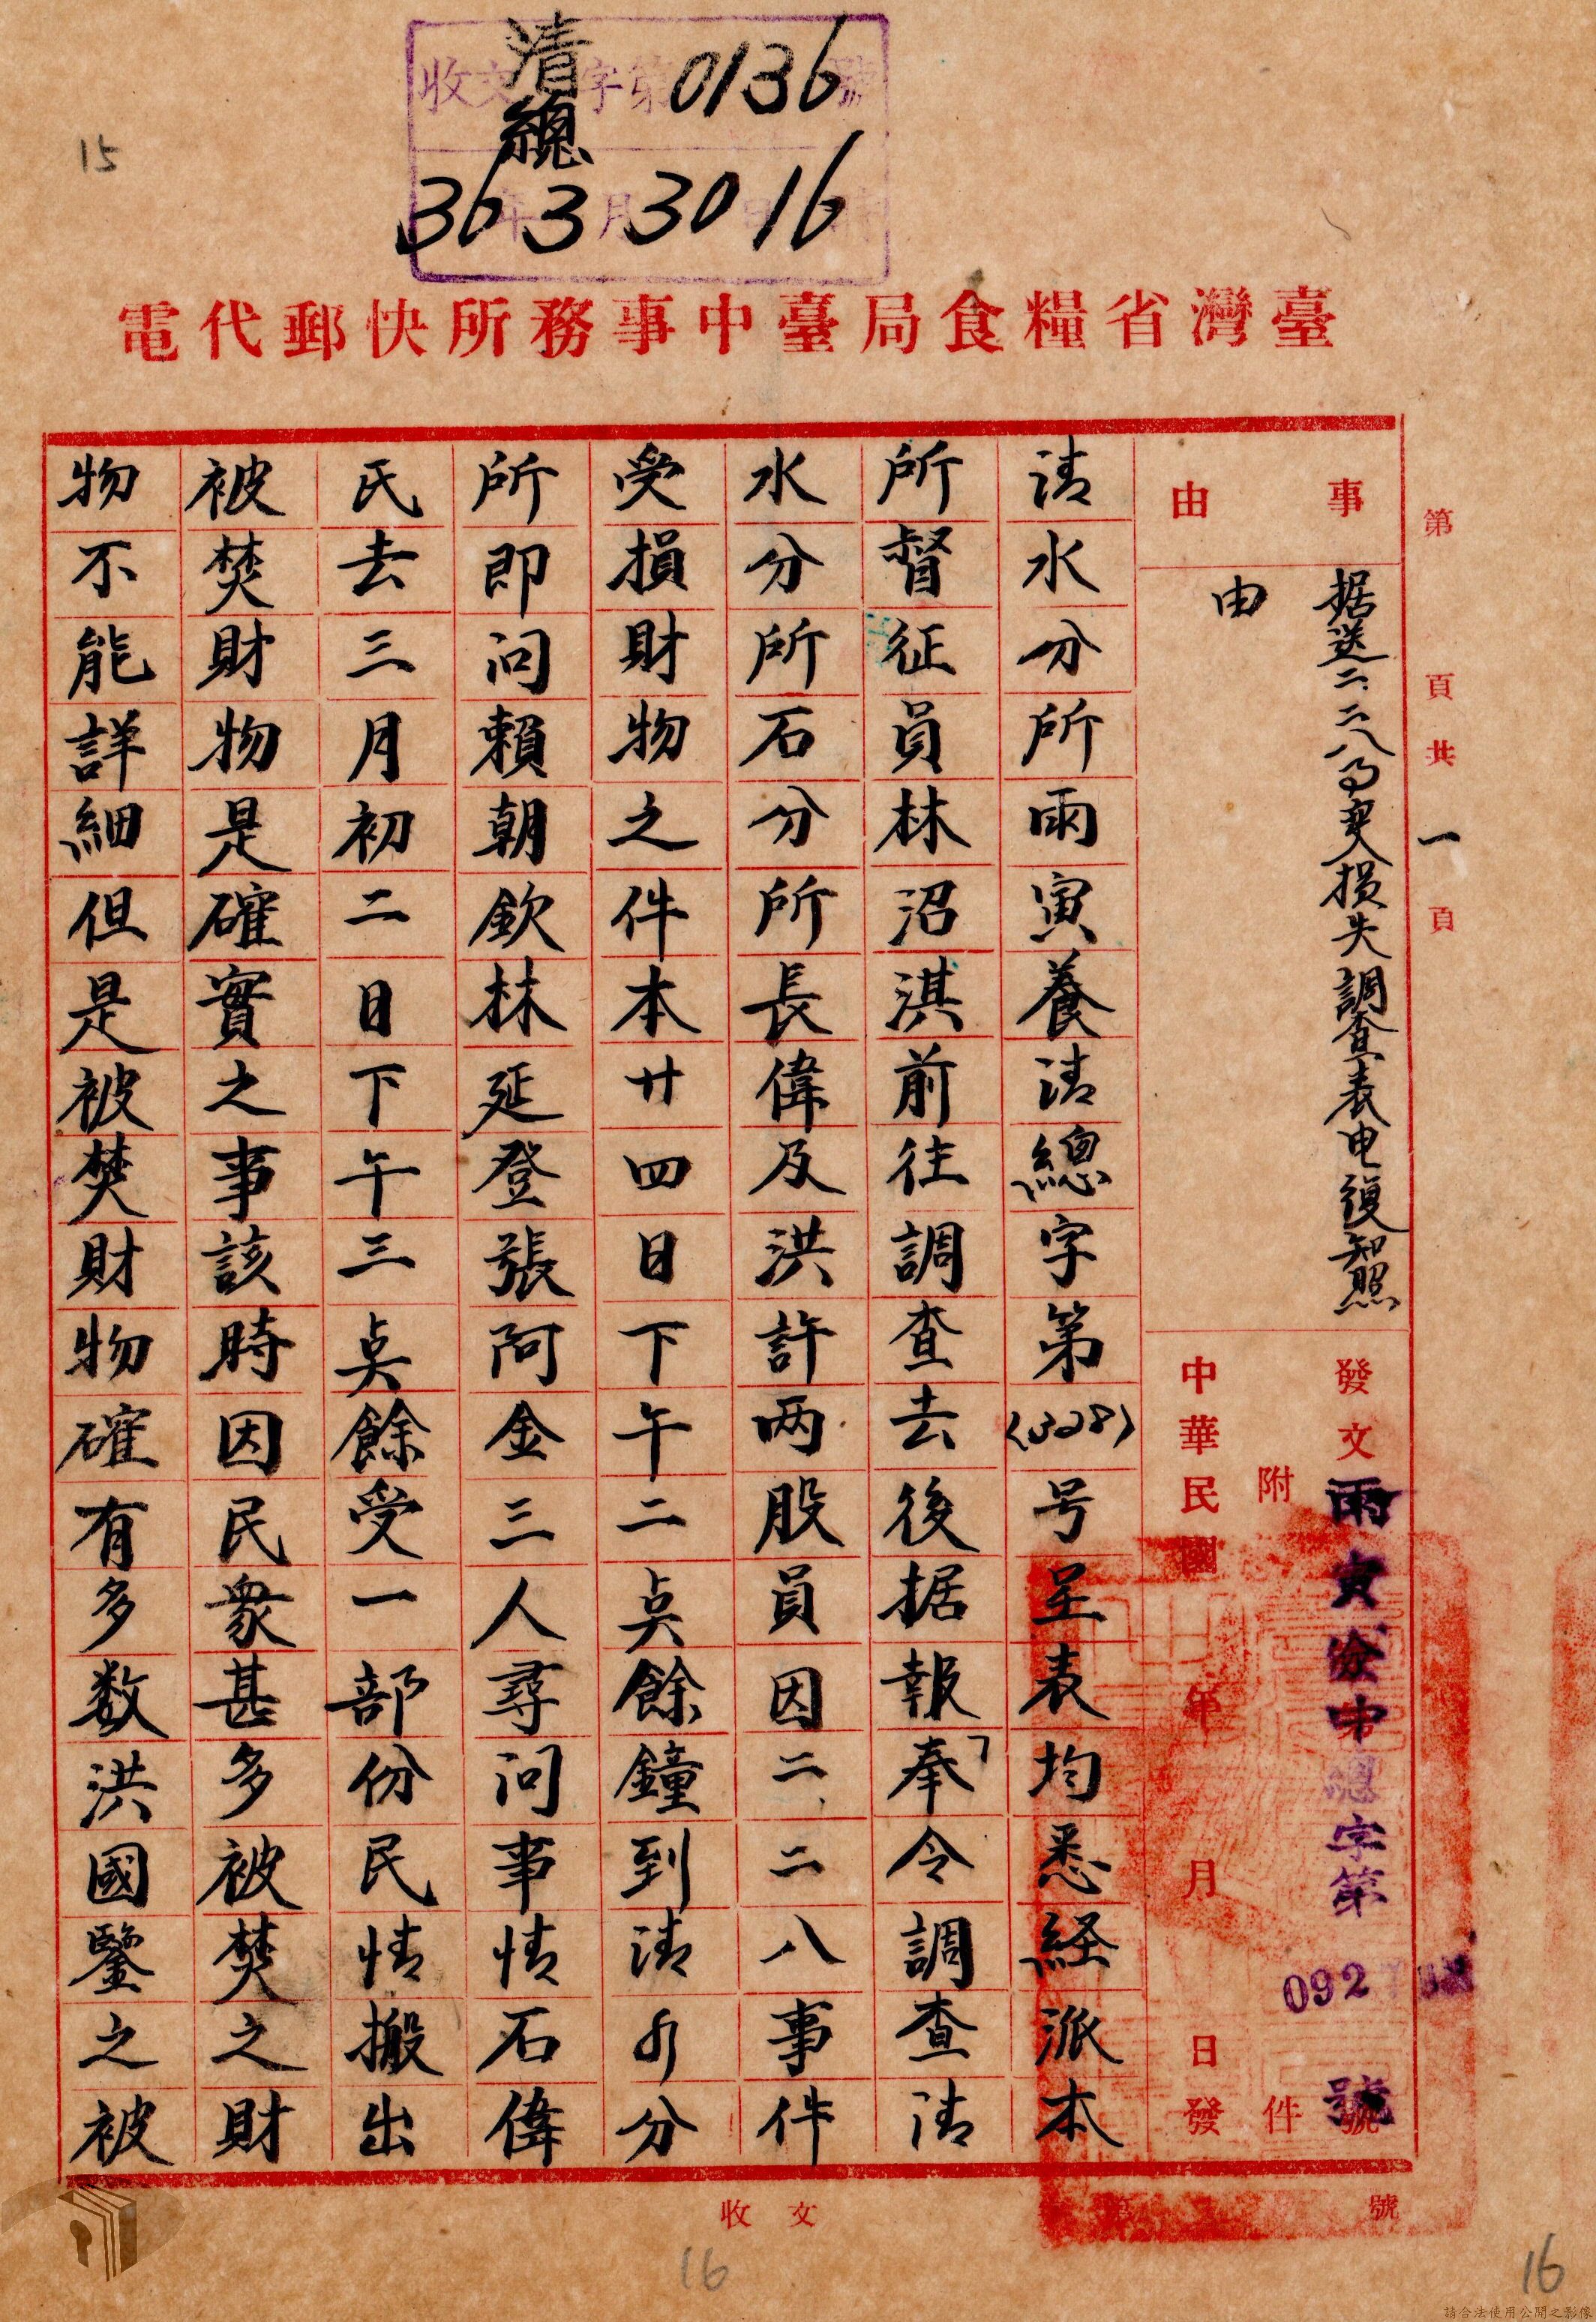 收文清總字第0136號
36年3月30日16時
15
臺灣省糧食局臺中事務所快郵代電
第 頁共一頁
事由
据送二、二八事変損失調查表电復知照
由
發文雨寅 中總字第092 號
附 件
中華民國 年 月 日發
清水分所雨寅養清總字第(328)号呈表均悉経派本
所督征員林沼淇前往調查去後据報「奉令調查清
水分所石分所長偉及洪許两股員因二、二八事件
受損財物之件本廿四日下午二点餘鐘到清水分
所即问賴朝欽林延登張阿金三人尋问事情石偉
氏去三月初二日下午三点餘受一部份民情搬出
被焚財物是確實之事該時因民衆甚多被焚之財
物不能詳細但是被焚財物確有多数洪國鑒之被
收文 第 號
16
16
請合法使用公開之影像